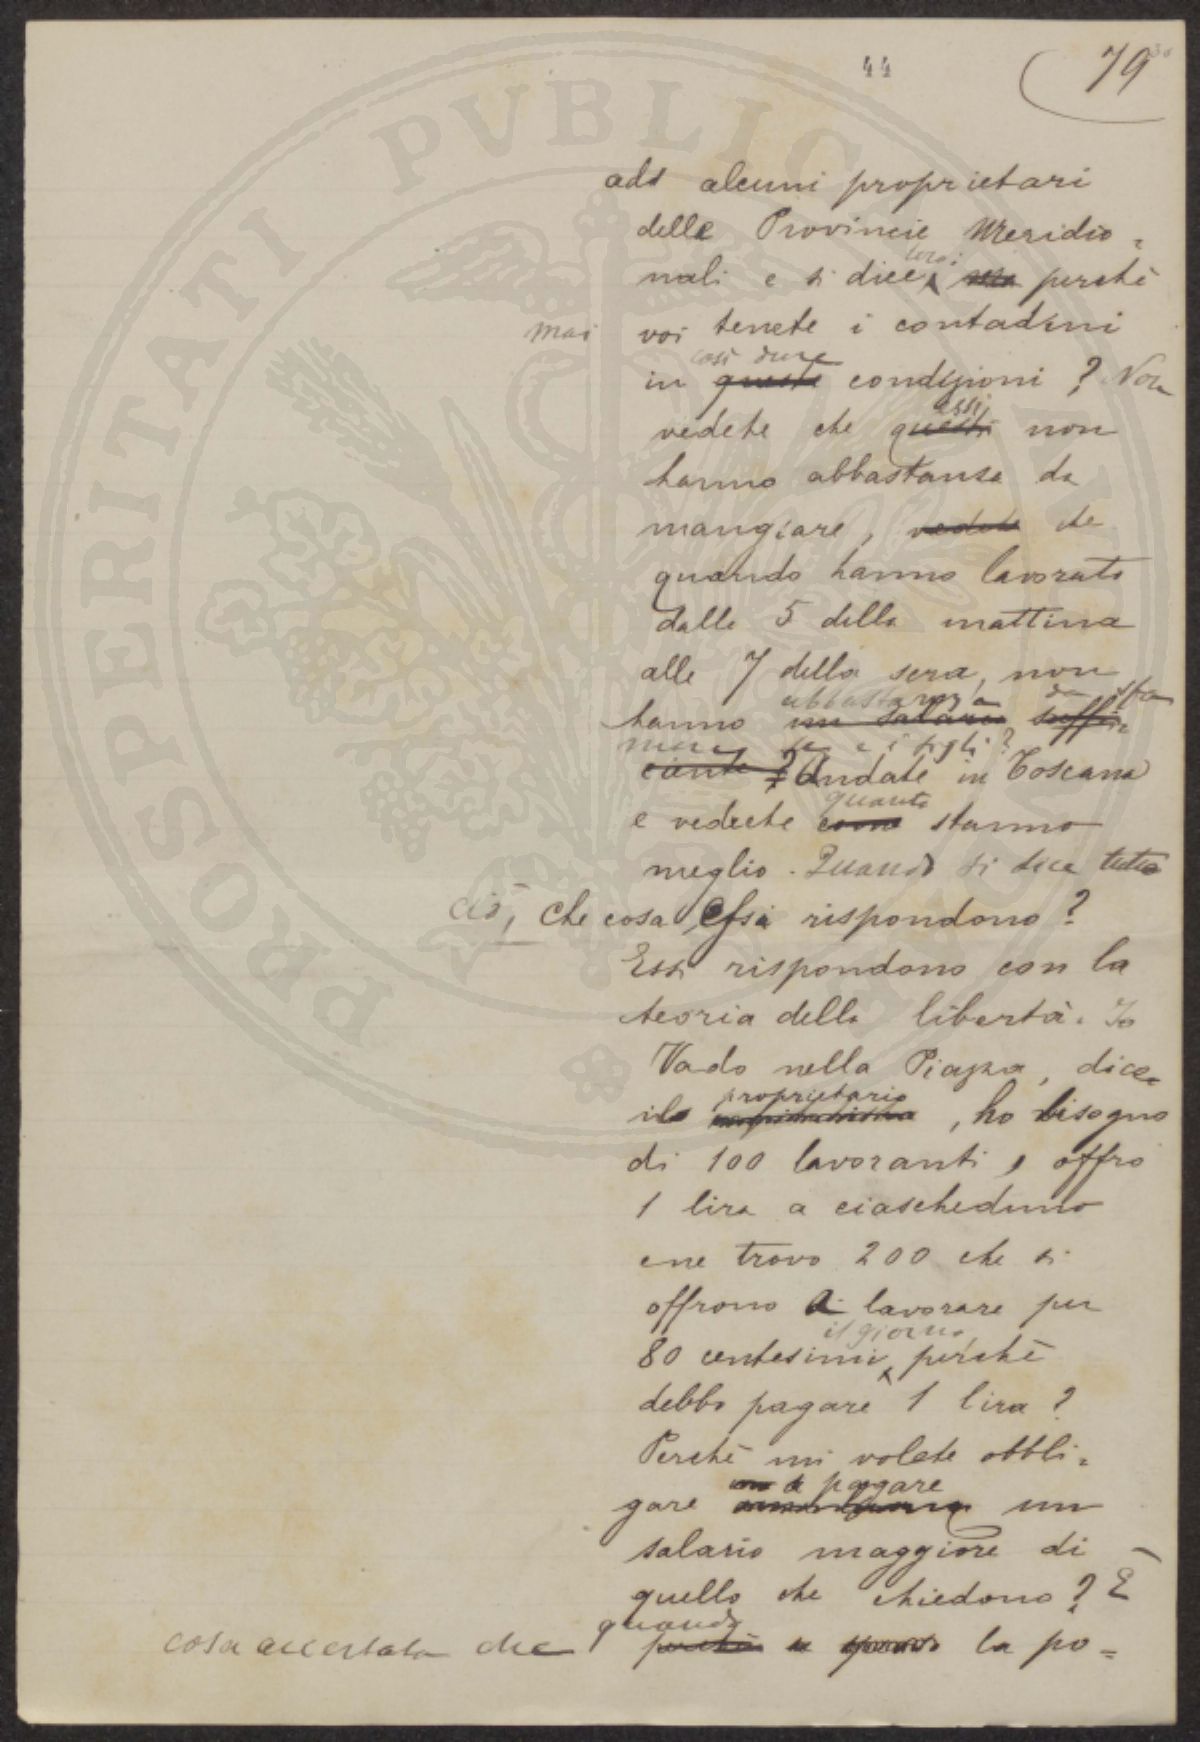 44
79
ad alcuni proprietari
delle Provincie Meridio=
loro:
nali e si dice, perchè
mai voi tenete i contadini
così dure
in queste condizioni? Non
essi
vedete che questi non
hanno abbastanza da
mangiare, vedete che
quando hanno lavorato
dalle 5 della mattina
alle 7 della sera, non
abbastanza da sfa=
hanno un salario suffi=
mare se e i figli?
ciente? Andate in Toscana
quanto
e vedrete come stanno
meglio. Quando si dice tutto
ciò, che cosa essi rispondono?
Essi rispondono con la
teoria della libertà. Io
Vado nella Piazza, dice
proprietario
il , ho bisogno
di 100 lavoranti, offro
1 lira a ciascheduno
e ne trovo 200 che si
offrono a lavorare per
il giorno,
80 centesimi, perchè
debbo pagare 1 lira?
Perchè mi volete obbli=
a pagare
gare un
salario maggiore di
quello che chiedono? È
quando
cosa accertata che la po=
PROSPERITATI PVBLICAE